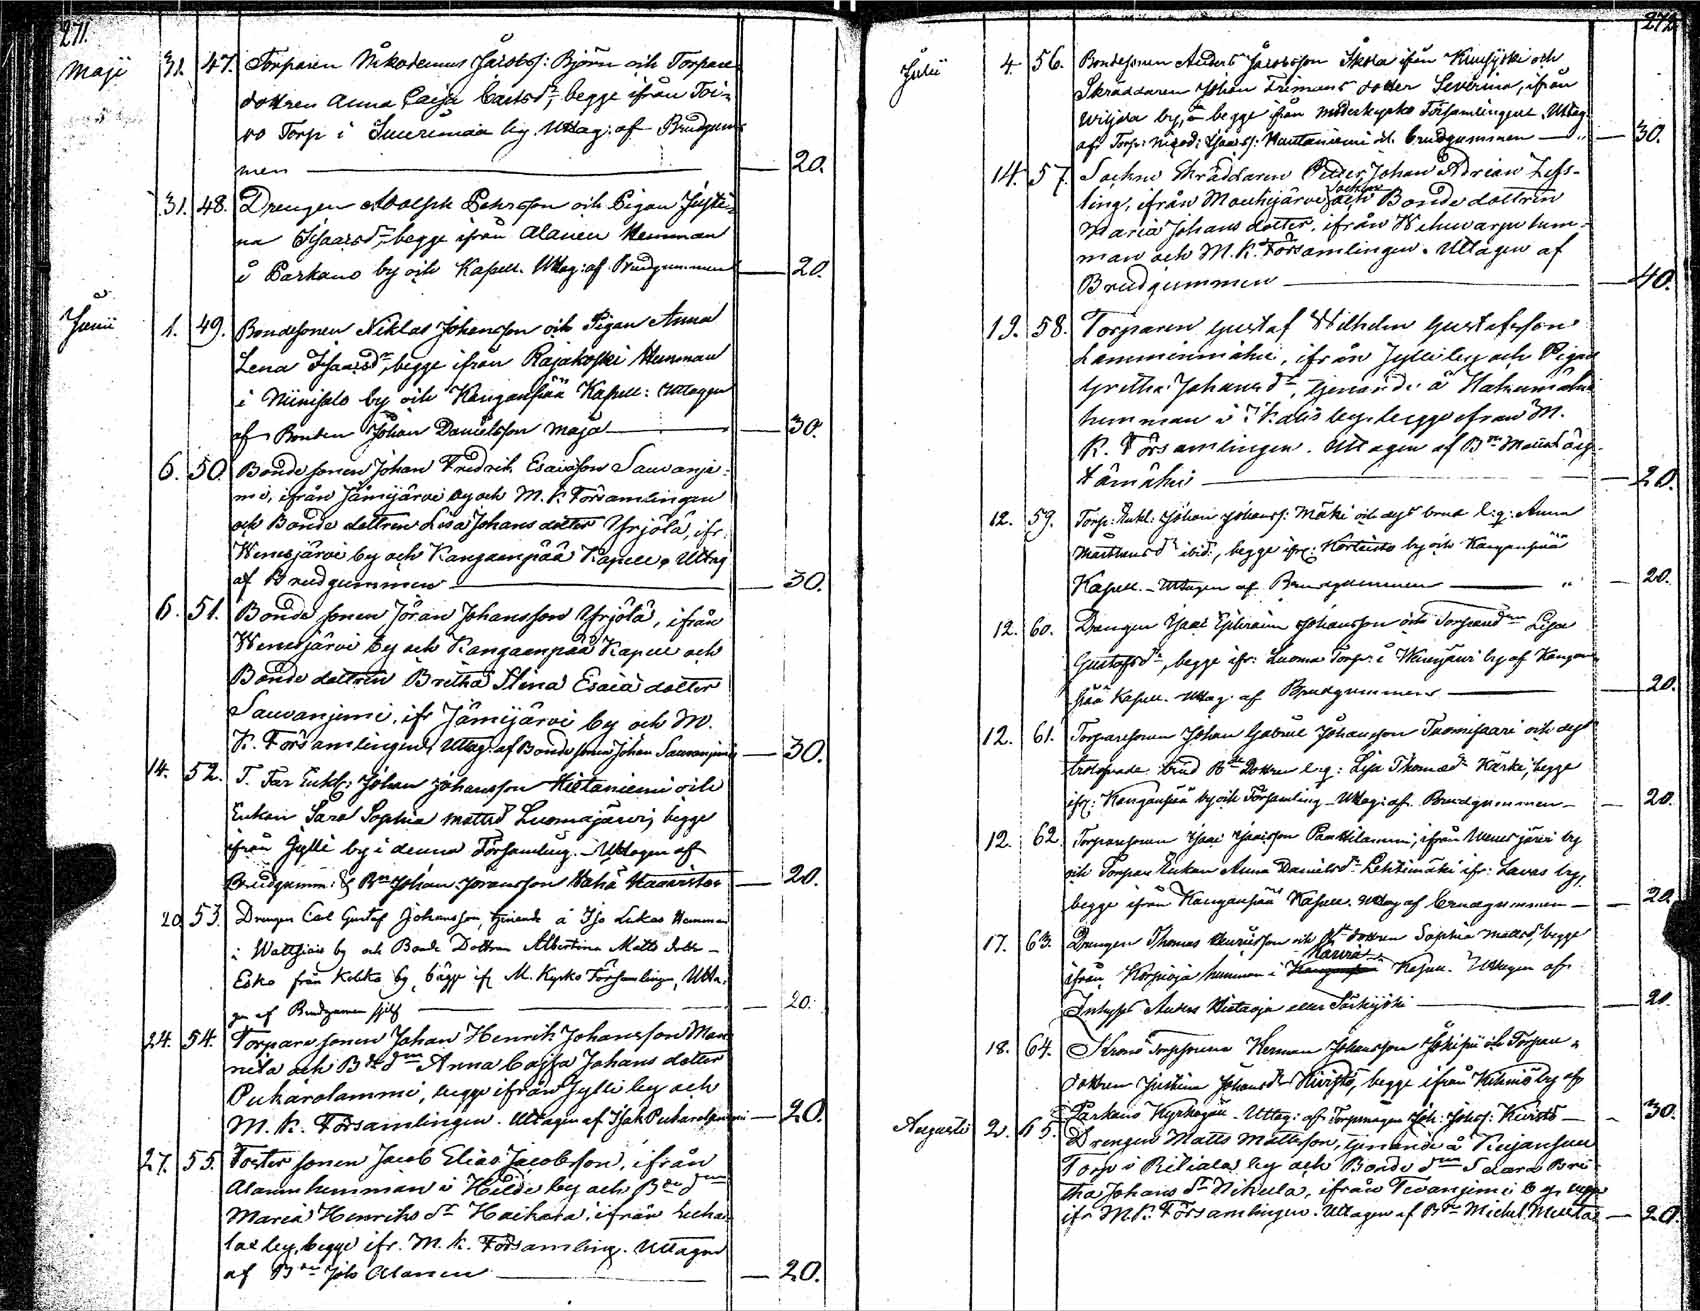 271.
Maji 31. 47. Torparen Nikodemus Jacobss: Björn och Torpare
dottren Anna Caisa Carlsdr, begge ifrån Toi-
vo Torp i Suurimaa by. Uttag: af Brudgum-
men — 20.
31. 48. Drengen Adolph Pehrsson och Pigan Justi-
na Isaacsdr, begge ifrån Alanen Hemman
i Parkano by och Kapell. Uttag: af Brudgummen — 20.
Junii 1. 49. Bondesonen Niklas Johansson och Pigan Anna
Lena Isaacsdr, begge ifrån Rajakoski Hemman
i Niinisalo by och Kanganpää Kapell: Uttagen
af Bonden Johan Danielsson Maja — 30.
6. 50. Bonde sonen Johan Fredrik Esaiasson Sauvanje-
mi, ifrån Jämijärvi by och M. K. Församlingen
och Bonde dottren Lisa Johans dotter Yrjölä, ifr.
Wenesjärvi by och Kangaanpää Kapell. Uttag
af Brudgummen — 30.
6. 51. Bonde sonen Jöran Johansson Yrjölä, ifrån
Wenesjärvi by och Kangaanpää Kapell och
Bonde dottren Britha Stina Esaiæ dotter
Sauvanjemi, ifr Jämijärvi by och M.
K. Församlingen. Uttag: af Bonde sonen Johan Sauvanjemi — 30.
14. 52. T. Far Enkl: Johan Johansson Hietaniemi och
Enkan Sara Sophia Mattsd Luomajärvi, begge
ifrån Jylli by i denna Församling. Uttagen af
Brudgumm: & Bn Johan Joransson Wähä — 20.
20. 53. Drengen Carl Gustaf Johansson, tjenande å Iso Lukas Hemman
i by och Bonde Dottren Albertina Matts dotter
Esko från by, bägge ifr M. Kyrko Församlingen, Utta-
gen af Brudgumen sjelf — 20.
24. 54. Torpare sonen Johan Henrik Johansson Man-
nila och Bde dn Anna Cajsa Johans dotter
Pukaralammi, begge ifrån Jylli by och
M. K. Församlingen. Uttagen af Isak Pukaralammi — 20.
27. 55. Foster sonen Jacob Elias Jacobsson, ifrån
Alanen hemman i by och Bde dn
Maria Henriks dr Haikara, ifrån Lecha-
lax by, begge ifr. M. K. Församling. Uttagen
af Bdn Joh Alanen — 20.
272.
Julii 4 56. Bondesonen Anders Jacobsson Skola ifrån och
Skräddaren Johan Frimans dotter Severina, ifrån
by, begge ifrån moderkyrko Församlingen. Uttag
af Torp: Isacss: Hautaniemi — 30.
14. 57. Sockne Skräddaren Petter Johan Adrian Lefs-
ling, ifrån Mouhijärvi Socken och Bonde dottren
Maria Johans dotter, ifrån Wehuvarpe hem-
man och M. K. Församlingen. Uttagen af
Brudgummen — 40.
19. 58. Torparen Gustaf Wilhelm Gustafsson
Lamminmäki, ifrån Jylli by och Pigan
Gretha Johans dr, tjenande å Hakumäki
hemman i by begge ifrån M.
K. Församlingen. Uttagen af Bn
— 20.
12. 59. Torp: Enkl: Johan Johanss: Mäki och dess brud l: q: Anna
Mattsens dr ibid:, begge ifr: by och Kanganpää
Kapell. Uttagen af Brudgummen — 20.
12. 60. Drengen Isaac Ephraim Johansson och Torparedn Lisa
Gustafsdr, begge ifr: Luoma Torp i by af Kangan-
pää Kapell. Uttag. af Brudgummen — 20.
12. 61. Torparesonen Johan Gabriel Johansson Tuomisaari och dess
trolofvade brud Bde Dottren l: q: Lisa Thomædr Kärki, begge
ifr: Kanganpää by och Församling. Uttag: af Brudgummen — 20.
12. 62. Torparesonen Isaac Isaacsson Paattilammi, ifrån Wenesjärvi by
och Torpare Enkan Anna Danielsdr Lehtimäki ifr: Lavas by,
begge ifrån Kanganpää Kapell. Uttag af Brudgummen — 20.
17. 63. Drengen Thomas Henricsson och Bde dottren Sophia Mattsd, begge
ifrån Korpioja hemman i Karvia Kapell. Uttagen af
Inhyses Anders Hietaoja eller — 20.
18. 64. Krono Torpsonen Herman Johansson Jokipii och Torpare
dottren Justina Johans dr Kivistö, begge ifrån by af
Parkano Kyrkogäll. Uttag: af Torparen Joh: Johss: Kivistö — 30.
Augusti 2. 65. Drengen Matts Mattsson, tjenande å
Torp i by och Bonde dn Saara Bri-
tha Johans dr Nikula, ifrån Tevanjemi by begge
ifr M. K. Församlingen. Uttagen af Bn Michel — 20.